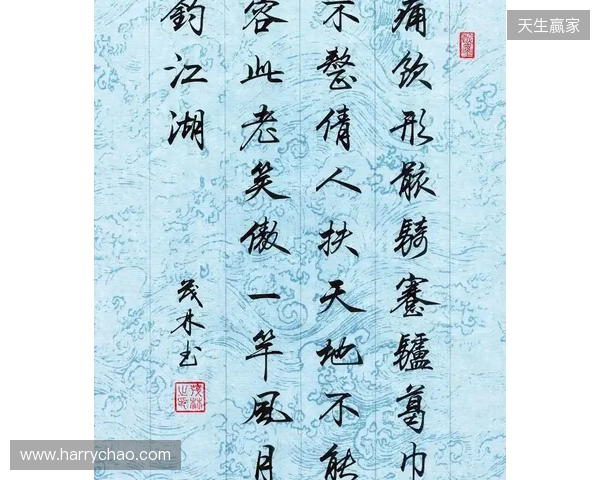 天生赢家
痛饮形骸騎蹇驢葛巾
不整倩人扶天地不能
容此老笑傲一竿風月
釣江湖
茂林书
www.harrychao.com